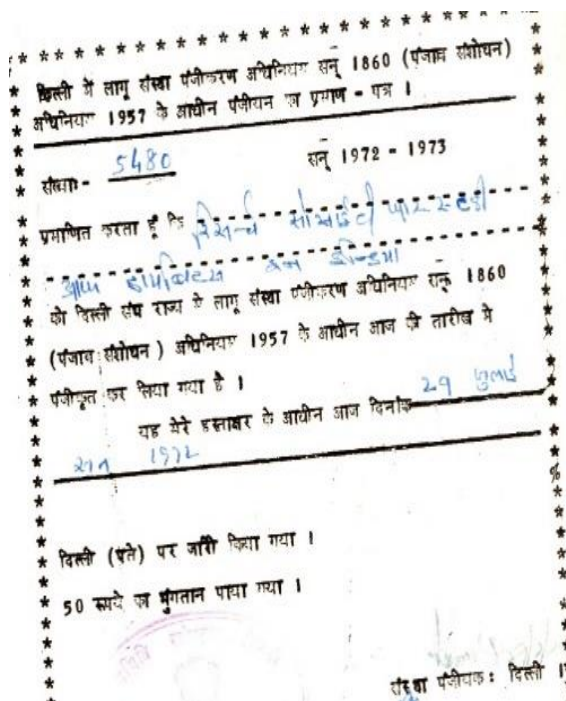 दिल्ली में लागू संस्था पंजीकरण अधिनियम सन् 1860 (पंजाब संशोधन)
अधिनियम 1957 के आधीन पंजीयन का प्रमाण - पत्र ।
संख्या:- 5480 सन् 1972 - 1973
प्रमाणित करता हूँ कि रिसर्च सोसाईटी फार स्टडी
आफ डायबिटिस इन इन्डिया
को दिल्ली संघ राज्य के लागू संस्था पंजीकरण अधिनियम सन् 1860
(पंजाब संशोधन) अधिनियम 1957 के आधीन आज की तारीख मे
पंजीकृत कर लिया गया है ।
यह मेरे हस्ताक्षर के आधीन आज दिनांक 29 जुलाई
सन 1972
दिल्ली (पते) पर जारी किया गया ।
50 रूपये का भुगतान पाया गया ।
संस्था पंजीयक: दिल्ली